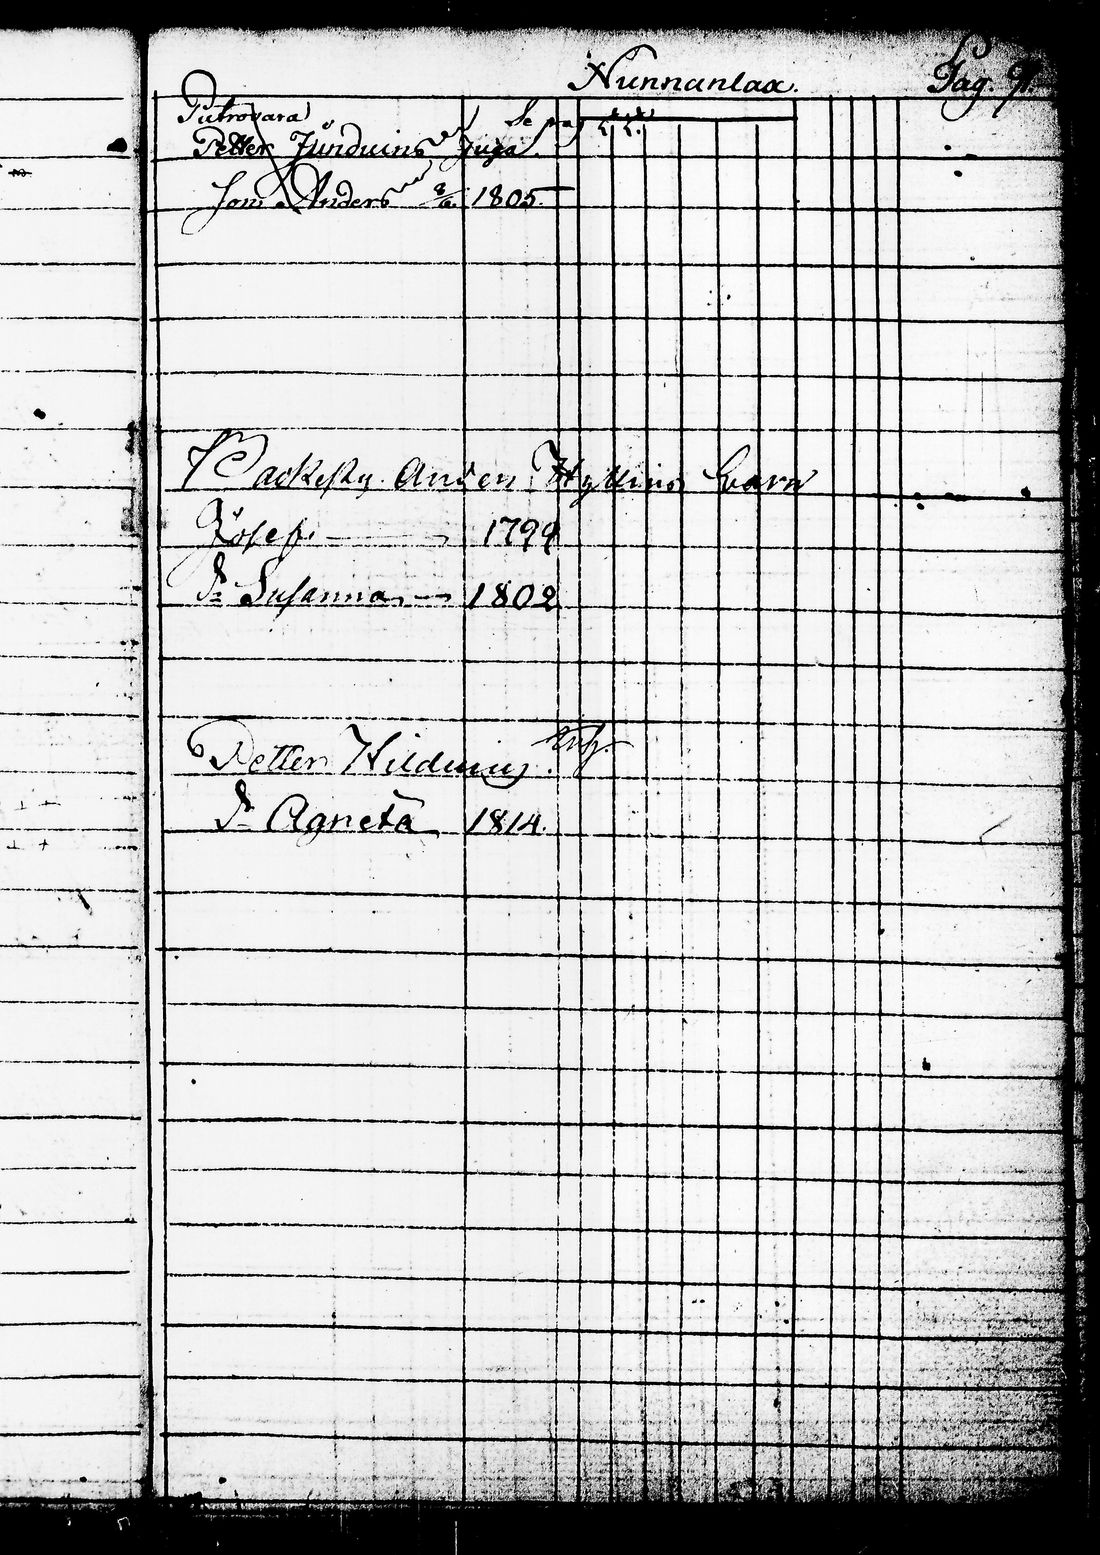 Nunnanlax. Pag. 91.
Putrovara
Petter Jünduins Juga. Se pag
Son Anders 8/6. 1805.
Anders Hyttins Barn
Josef. 1799
Dr Susanna 1802
Petter Hilduinij.
Dr Agneta 1814.